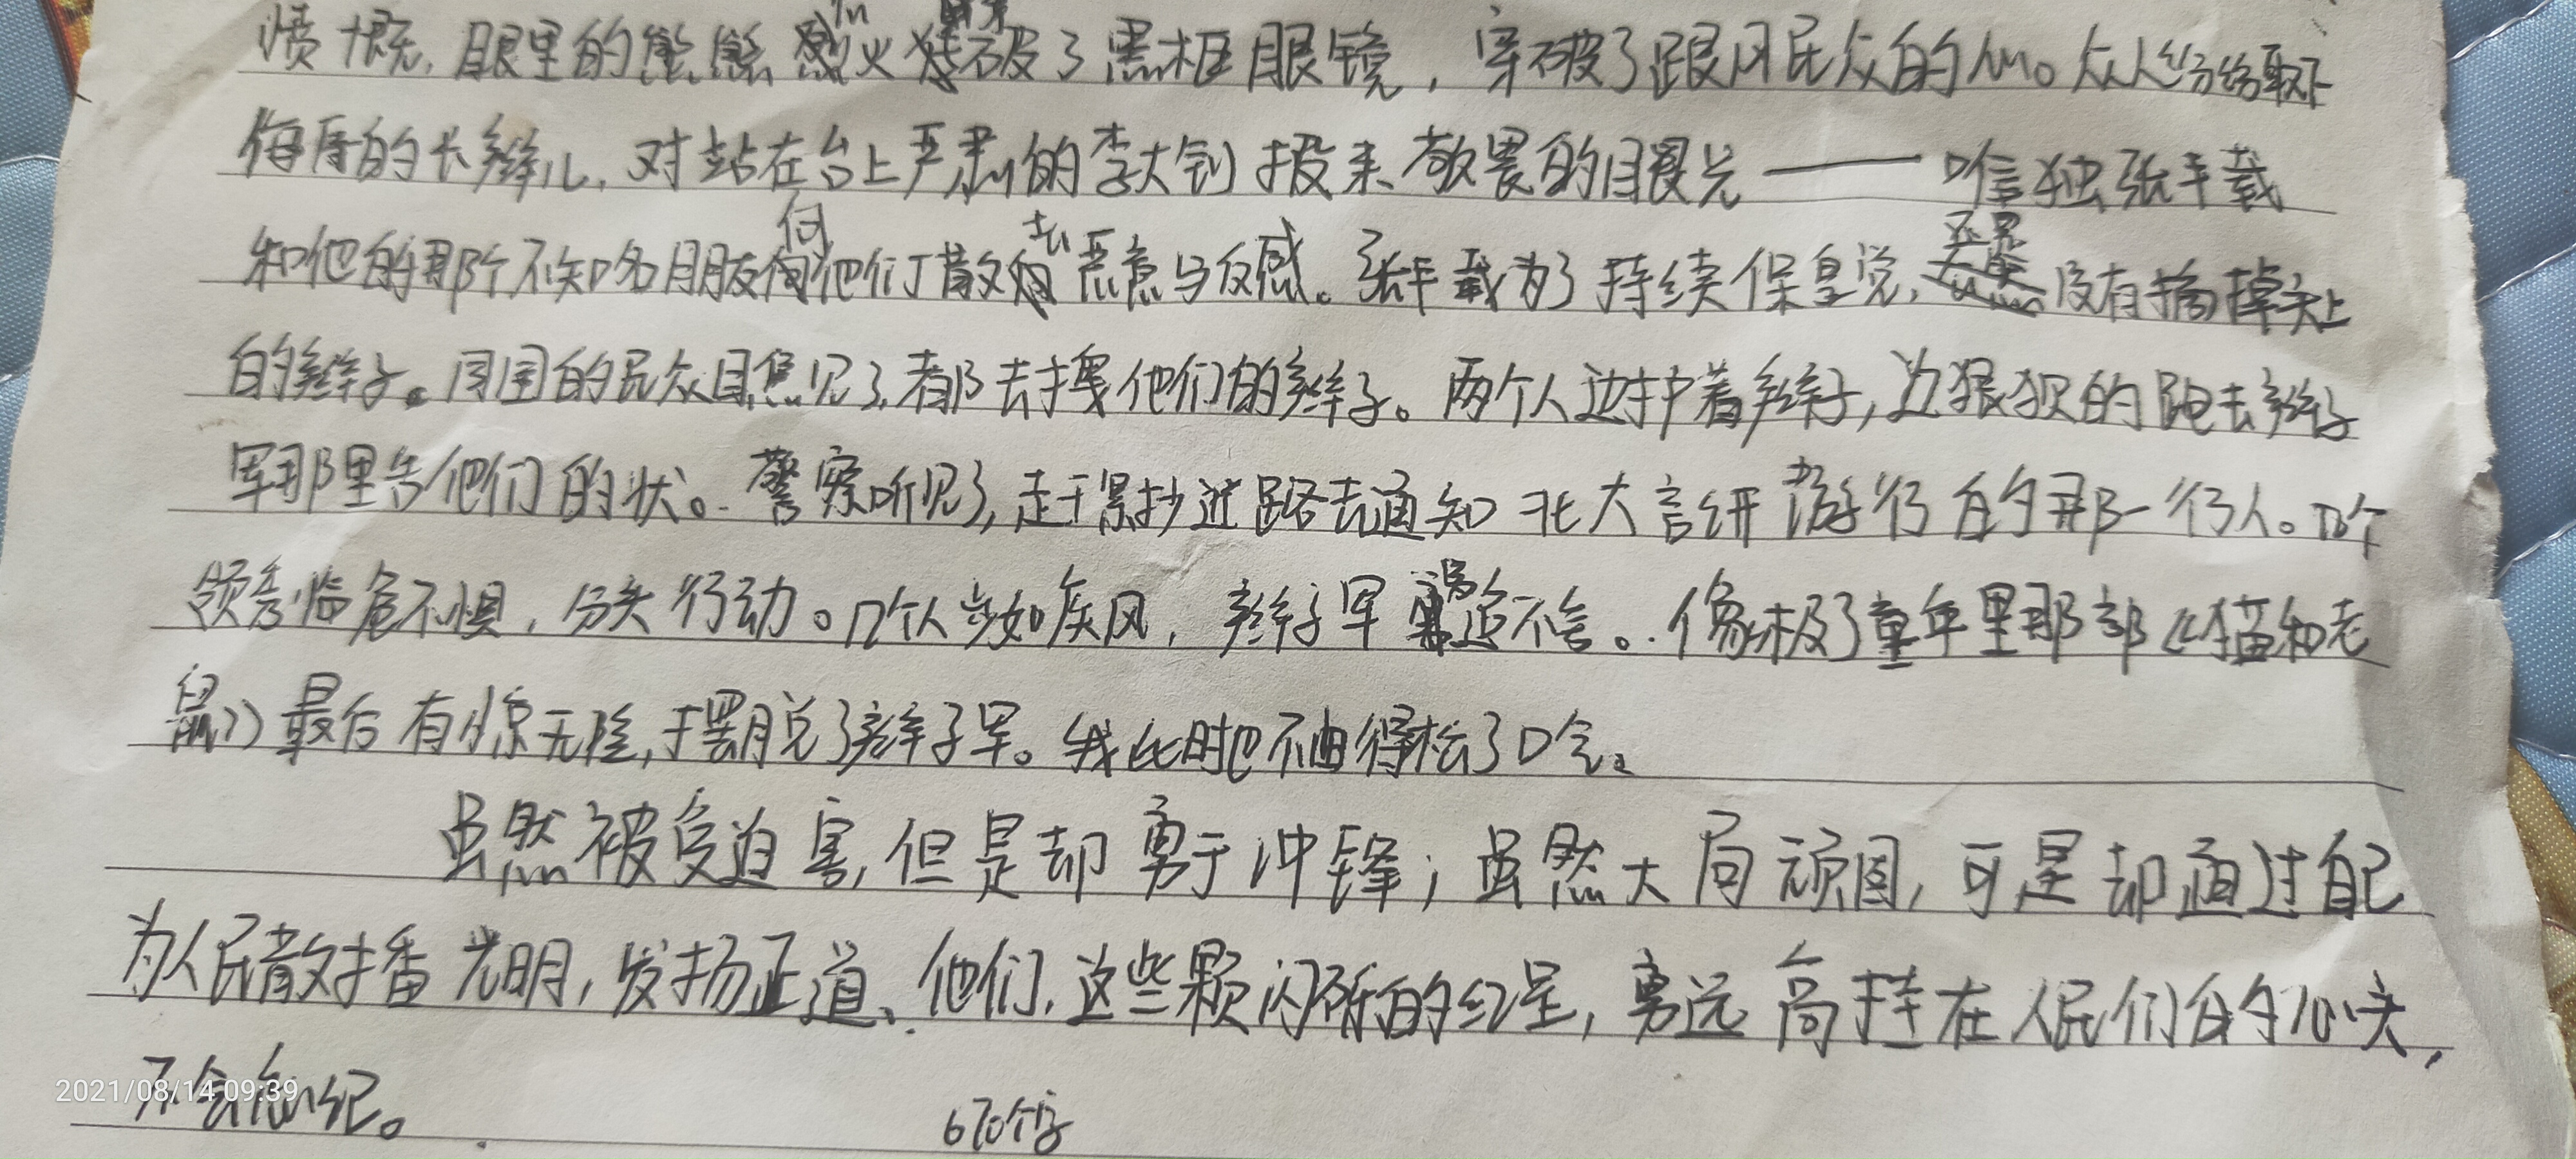 愤慨，眼里的熊熊烈火烧破了黑框眼镜，穿破了跟风民众的心。众人纷纷取下
侮辱的长辫儿，对站在台上严肃的李大钊投来敬畏的目光——唯独张丰载
和他的那个不知名朋友向他们散去恶意与反感。张丰载为了持续保皇党，还是没有摘掉头上
的辫子。周围的民众见了，都去拽他们的辫子。两个人边护着辫子，边狠狠的跑去辫子
军那里告他们的状。警察听见了，赶紧抄近路去通知北大游行的那一行人。几个
领袖临危不惧，分头行动。几个人步如疾风，辫子军穷追不舍。像极了童年里那部《猫和老
鼠》最后有惊无险，摆脱了辫子军。我此时也不由得松了口气。
虽然被受迫害，但是却勇于冲锋；虽然大局顽固，可是却通过自己
为人民散播光明，发扬正道。他们，这些颗闪烁的红星，勇远高挂在人民们的心头，
不会忘记。
670个字
2021/08/14 09:39